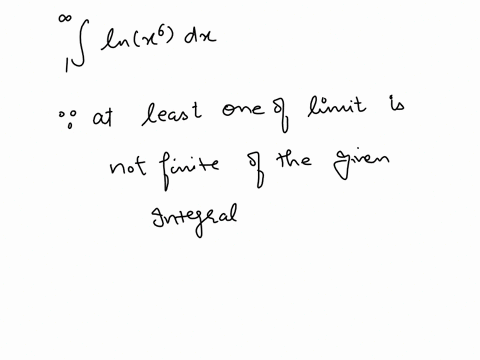 ∫₁^∞ ln(x⁶) dx
∵ at least one of limit is
not finite of the given
Integral